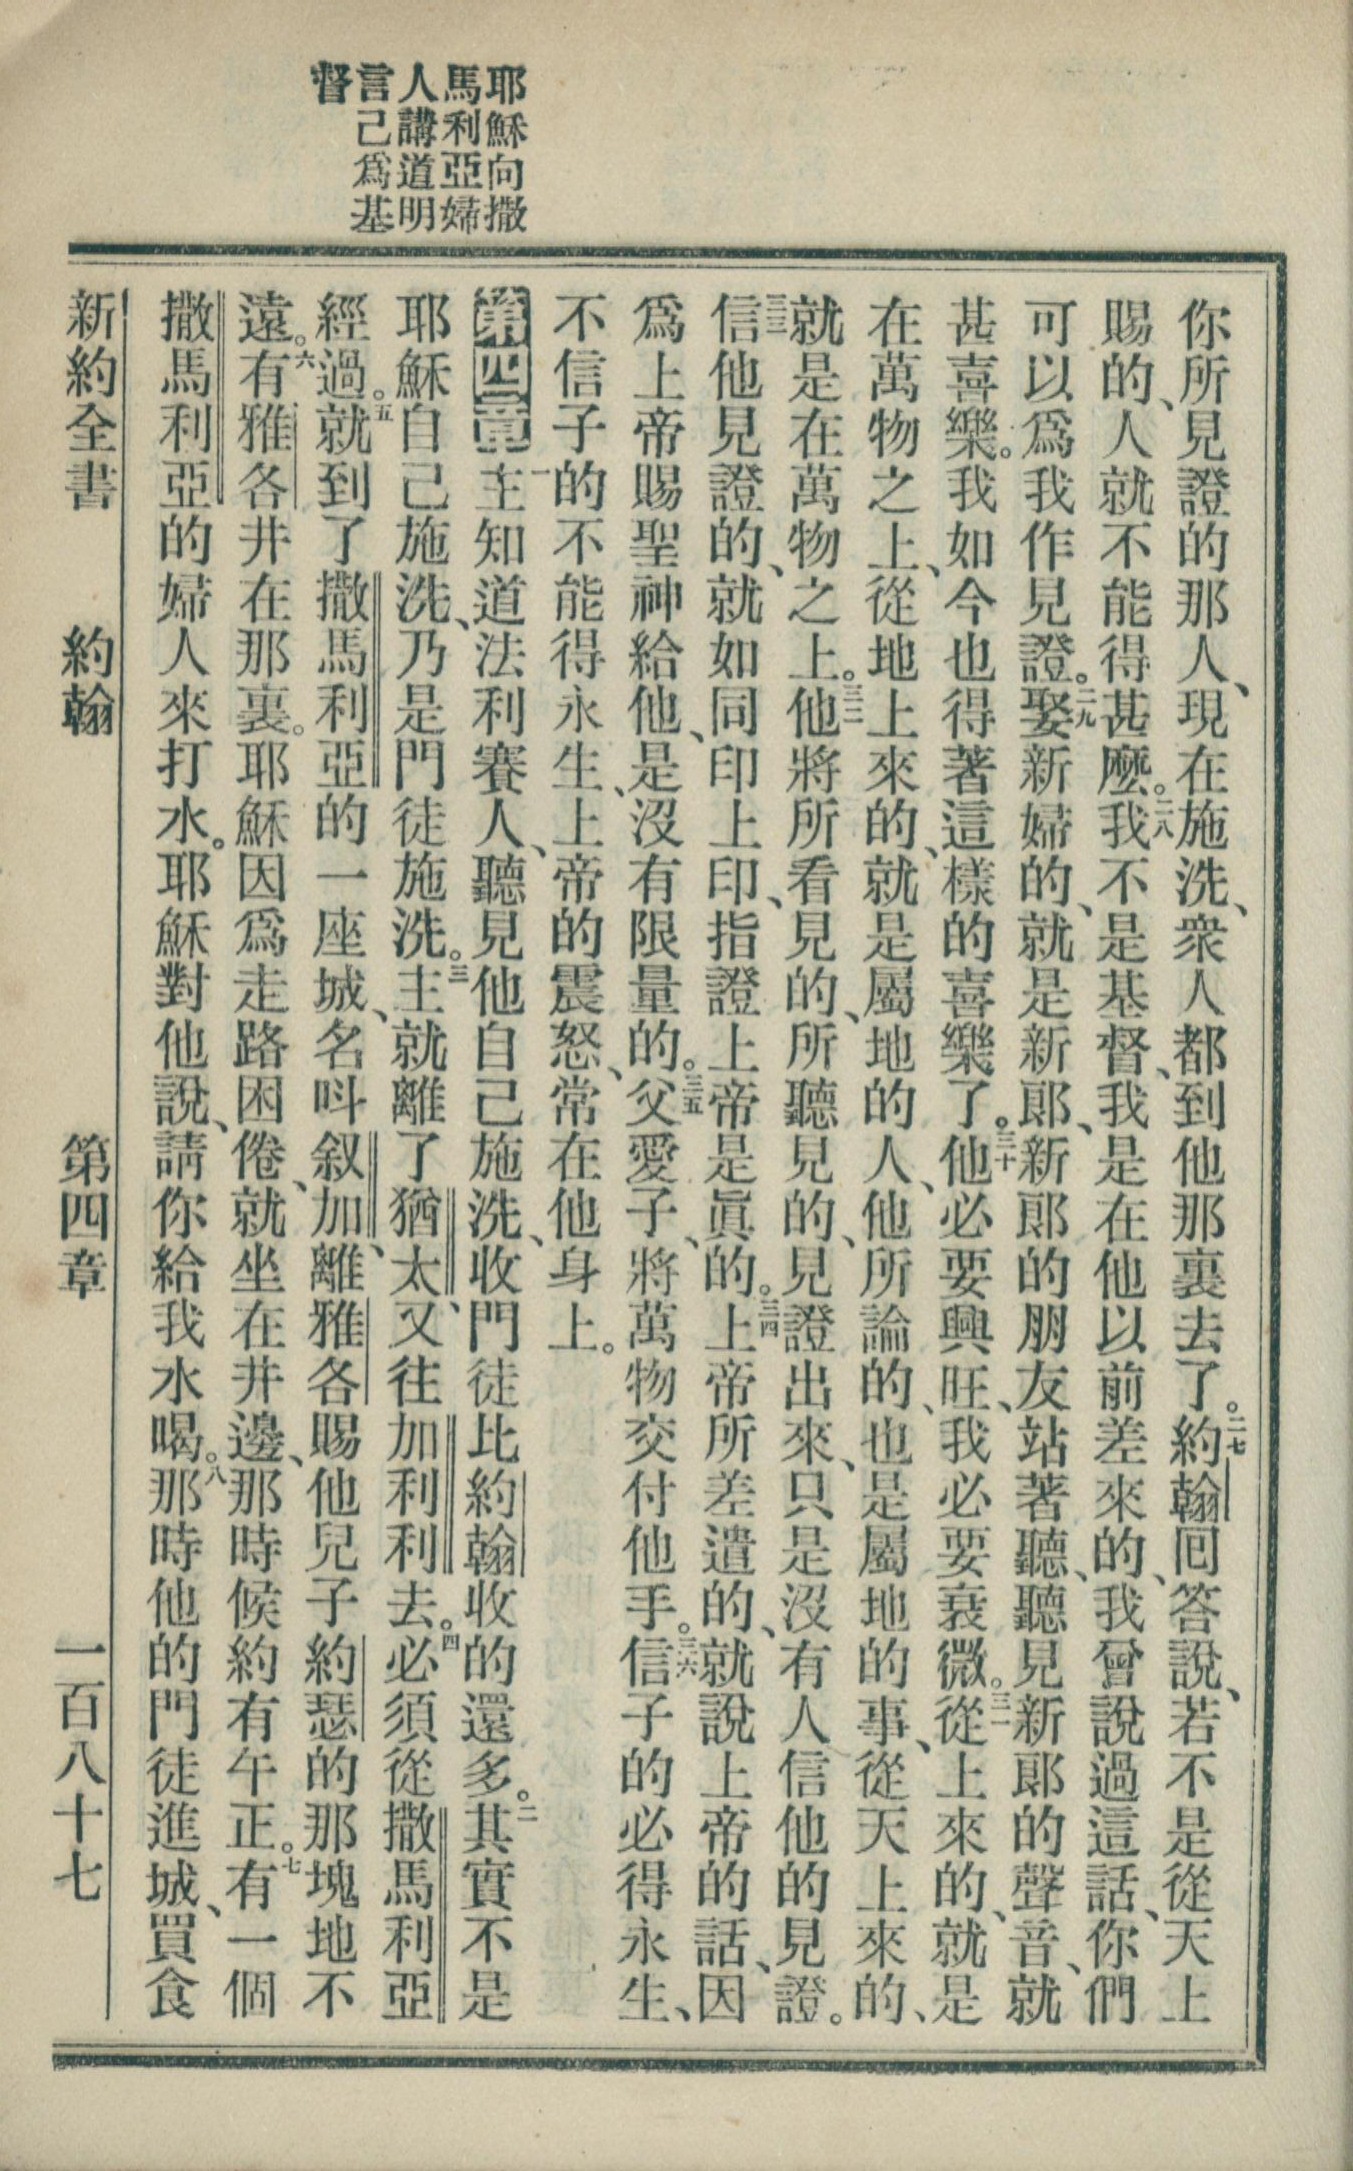 耶穌向撒
馬利亞婦
人講道明
言己爲基
督
你所見證的那人、現在施洗、衆人都到他那裏去了。二七約翰回答說、若不是從天上
賜的、人就不能得甚麼。二八我不是基督、我是在他以前差來的、我曾說過這話、你們
可以爲我作見證。二九娶新婦的、就是新郎、新郎的朋友站著聽、聽見新郎的聲音、就
甚喜樂。我如今也得著這樣的喜樂了。三十他必要興旺、我必要衰微。三一從上來的、就是
在萬物之上、從地上來的、就是屬地的人、他所論的、也是屬地的事、從天上來的、
就是在萬物之上。三二他將所看見的、所聽見的、見證出來、只是沒有人信他的見證。
三三信他見證的、就如同印上印、指證上帝是眞的。三四上帝所差遣的、就說上帝的話、因
爲上帝賜聖神給他、是沒有限量的。三五父愛子、將萬物交付他手。三六信子的必得永生、
不信子的不能得永生、上帝的震怒、常在他身上。
第四章 一主知道法利賽人、聽見他自己施洗、收門徒比約翰收的還多。二其實不是
耶穌自己施洗、乃是門徒施洗。三主就離了猶太、又往加利利去。四必須從撒馬利亞
經過。五就到了撒馬利亞的一座城、名呌叙加、離雅各賜他兒子約瑟的那塊地不
遠。六有雅各井在那裏。耶穌因爲走路困倦、就坐在井邊、那時候約有午正。七有一個
撒馬利亞的婦人來打水。耶穌對他說、請你給我水喝。八那時他的門徒進城、買食
新約全書 約翰 第四章 一百八十七